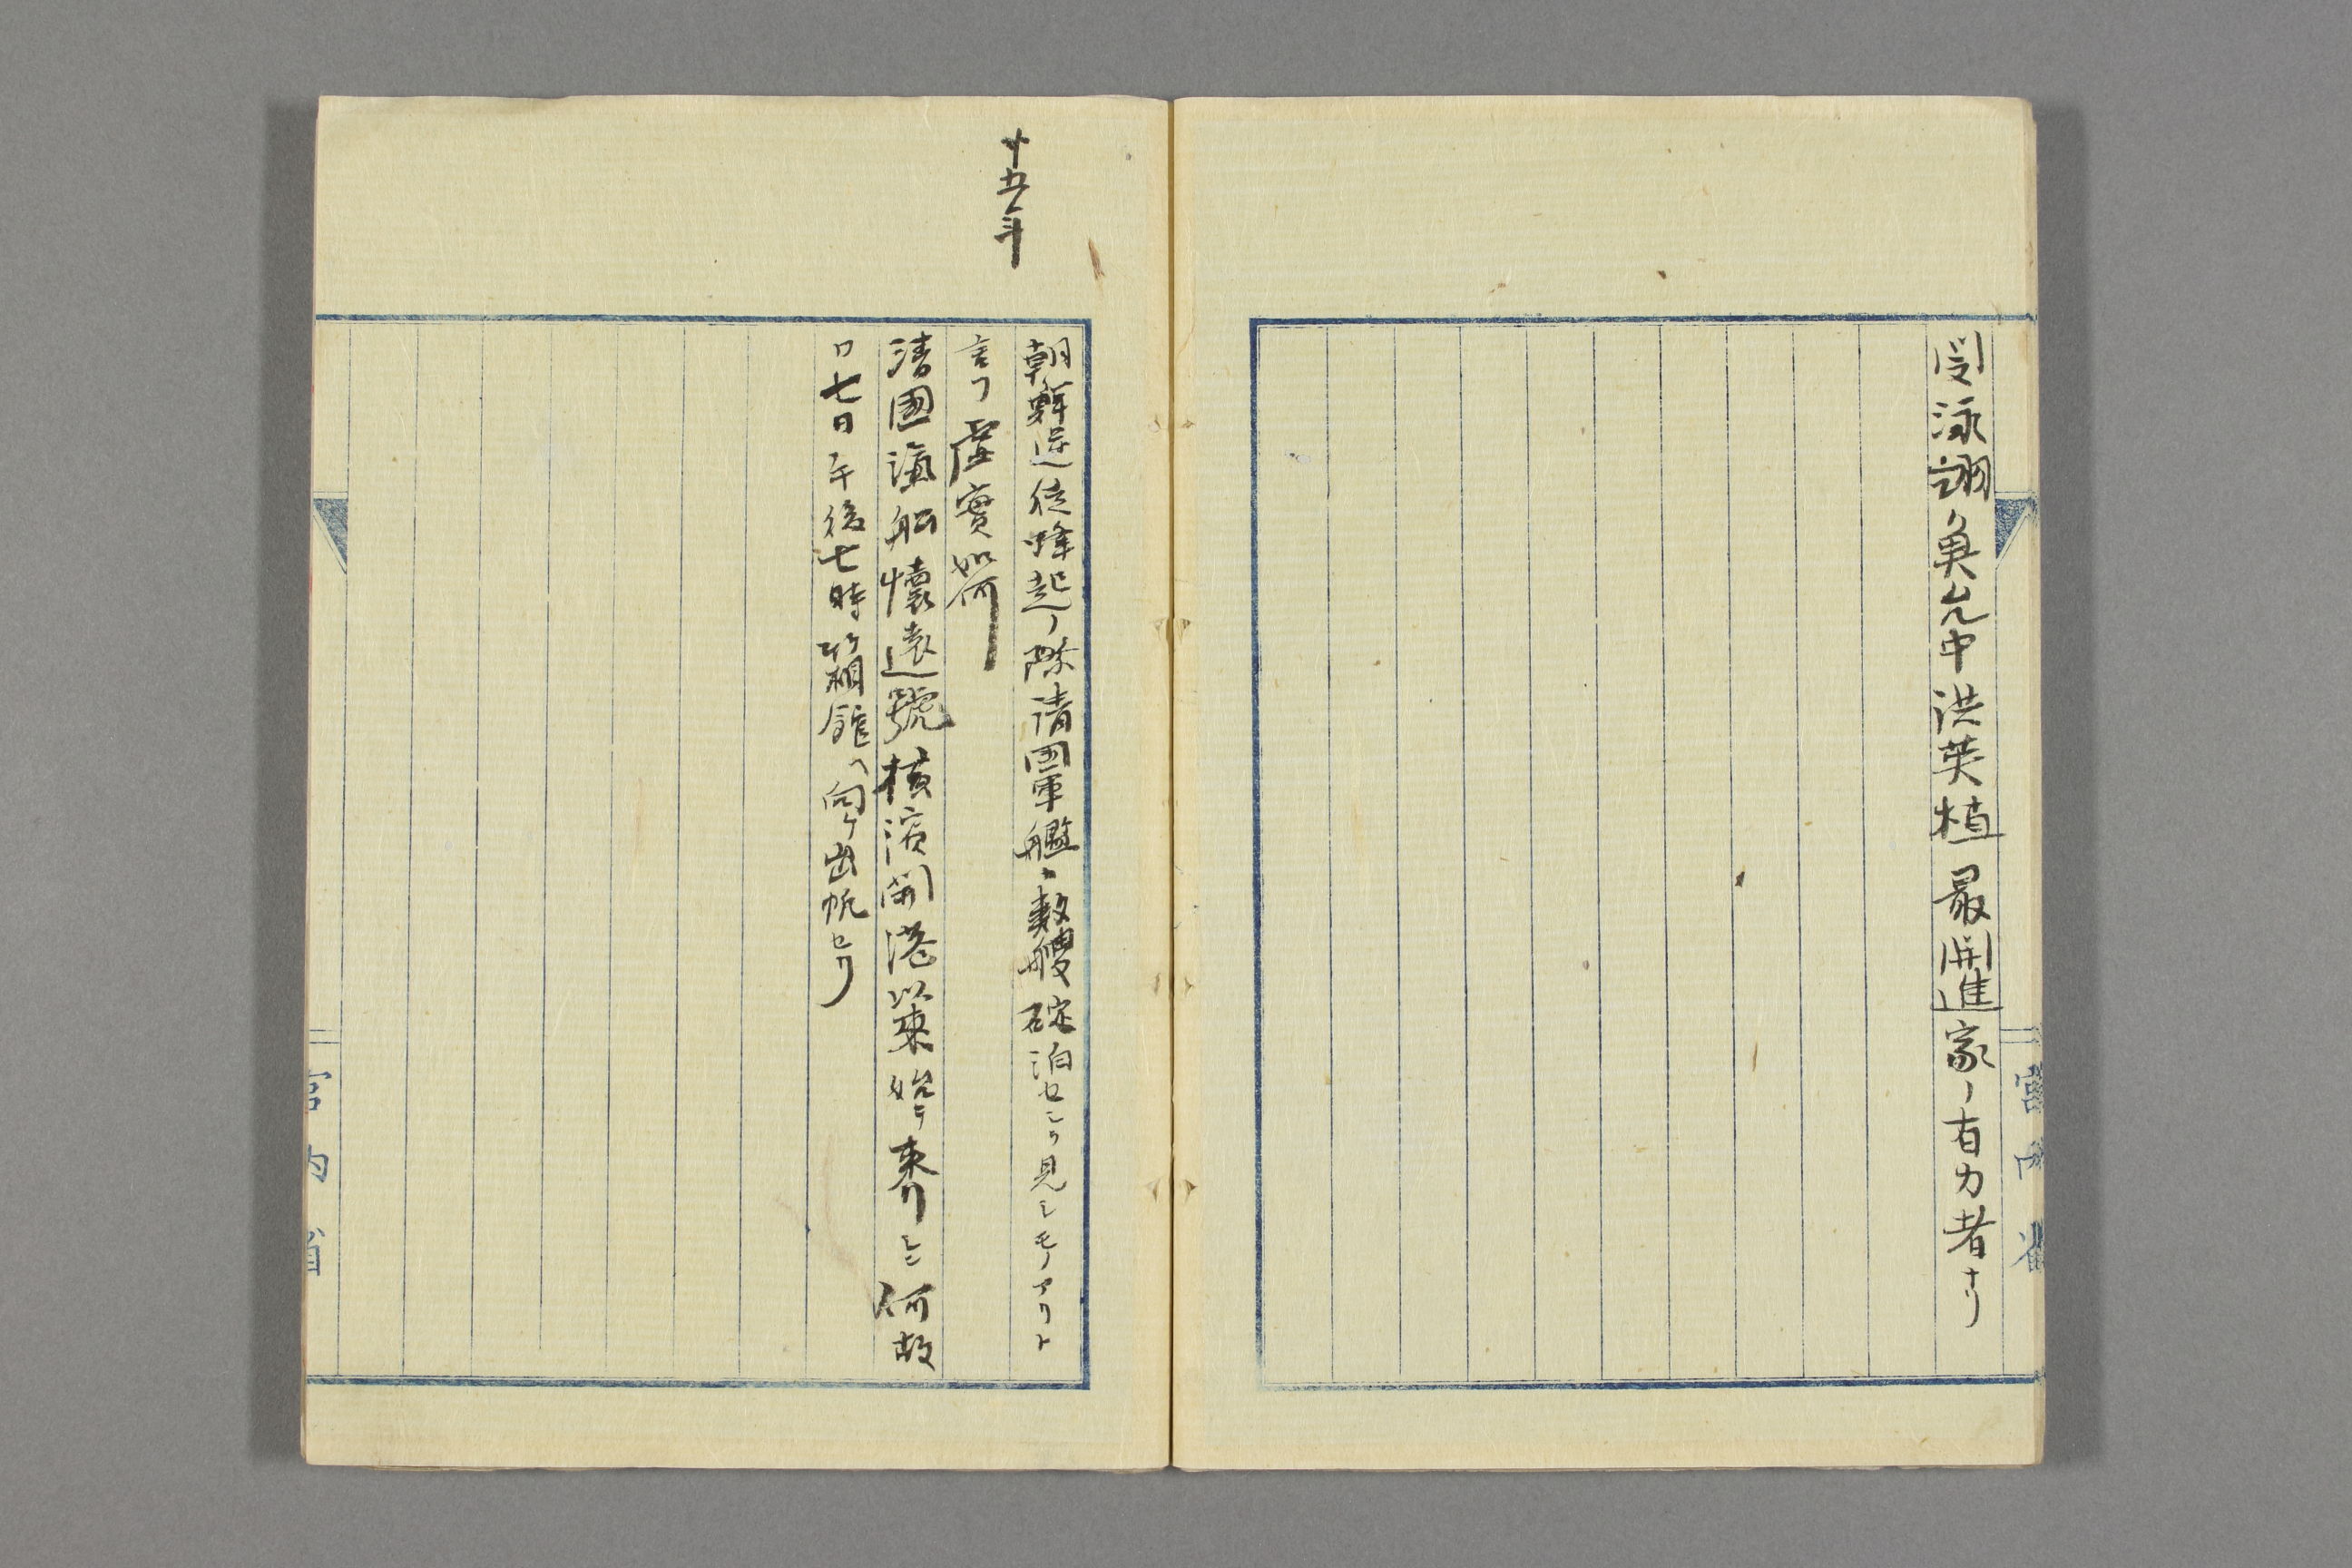 閔泳翊魚允中洪英植最開進家ノ有力者ナリ
宮内省
十五年
朝鮮逆徒蜂起ノ際清国軍艦数艘碇泊セシヲ見シモノアリト
言フ虚實如何
清國滊舩懐遠號横濱開港以来始テ来リシニ何故
カ七日午後七時箱館ヘ向ケ出帆セリ
宮内省